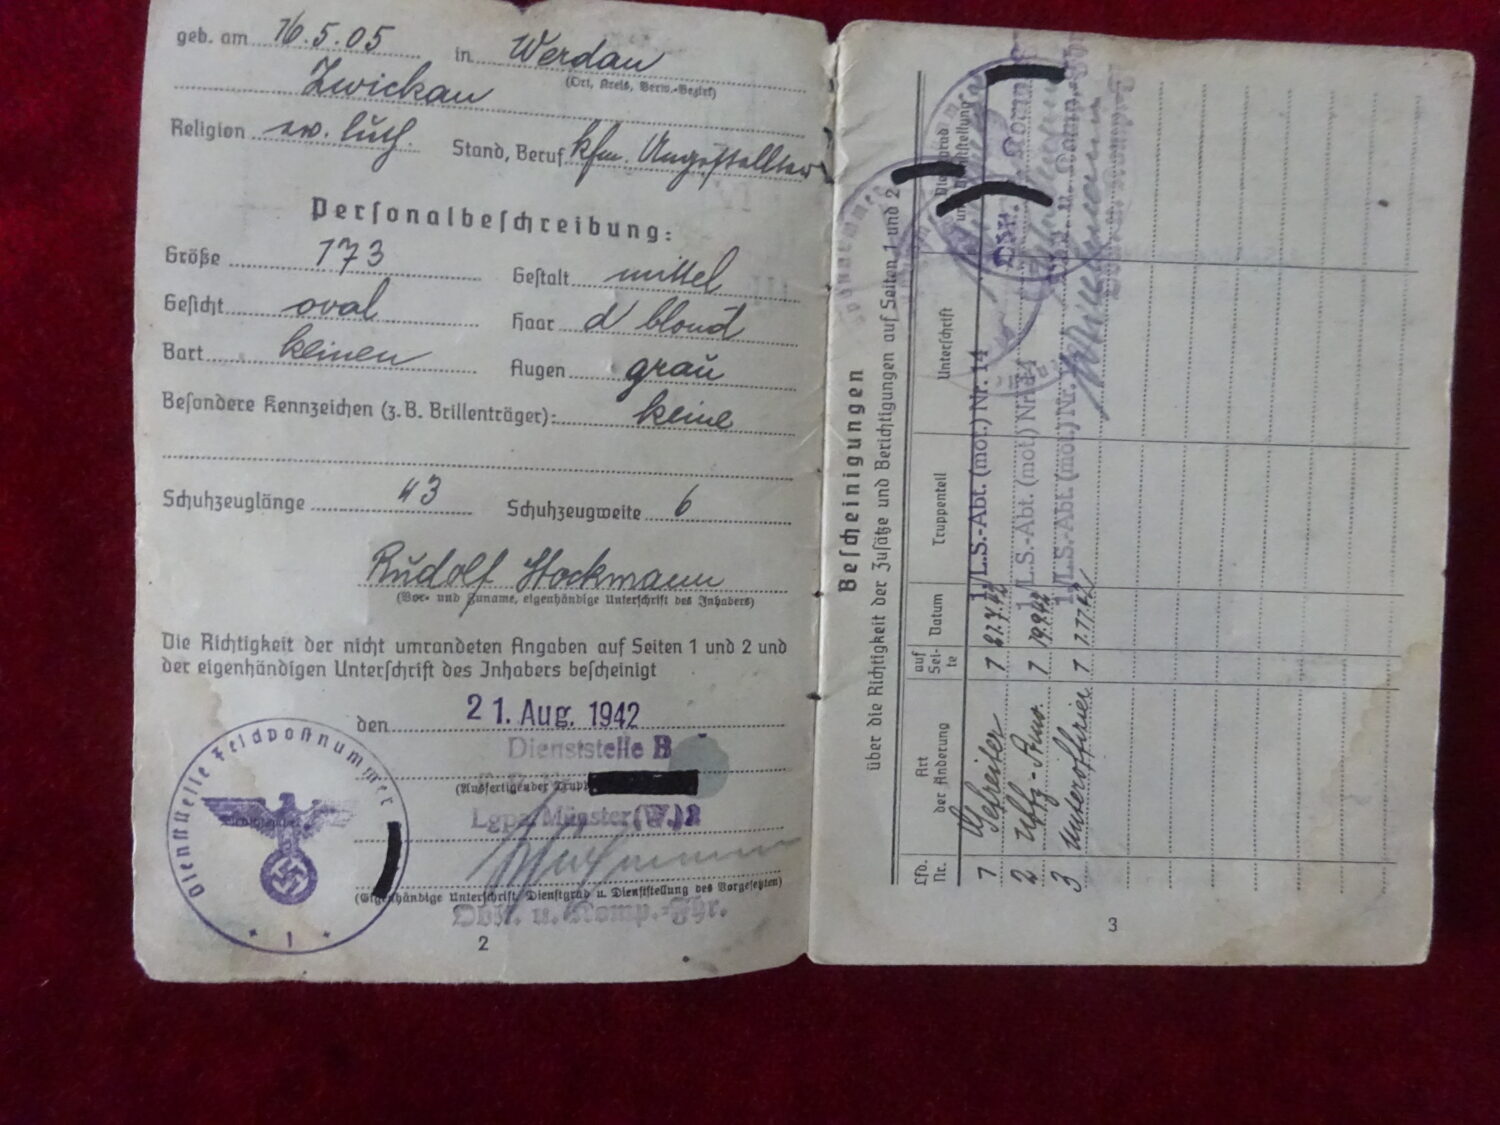 geb. am 16.5.05 in Werdau
(Ort, Kreis, Verw.-Bezirk)
Zwickau
Religion ev. luth. Stand, Beruf kfm. Angestellter
Personalbeschreibung:
Größe 173 Gestalt mittel
Gesicht oval Haar d blond
Bart keinen Augen grau
Besondere Kennzeichen (z.B. Brillenträger): keine
Schuhzeuglänge 43 Schuhzeugweite 6
Rudolf Stockmann
(Vor- und Zuname, eigenhändige Unterschrift des Inhabers)
Die Richtigkeit der nicht umrandeten Angaben auf Seiten 1 und 2 und
der eigenhändigen Unterschrift des Inhabers bescheinigt
den 21. Aug. 1942
Dienststelle B
(Ausfertigender
Lgpa. Münster (W.) 2
(Eigenhändige Unterschrift, Dienstgrad u. Dienststellung des Vorgesetzten)
u. Komp.-Fhr.
Dienststelle Feldpostnummer
* 1 *
2
Bescheinigungen
über die Richtigkeit der Zusätze und Berichtigungen auf Seiten 1 und 2
Lfd. Nr. Art der Änderung auf Seite Datum Truppenteil Unterschrift
1 Gefreiter 1 1./L.S.-Abt. (mot.) Nr. 14
2 1 19.9.42 1./L.S.-Abt. (mot.) Nr. 14
3 Unteroffizier 1 1./L.S.-Abt. (mot.) Nr.
3